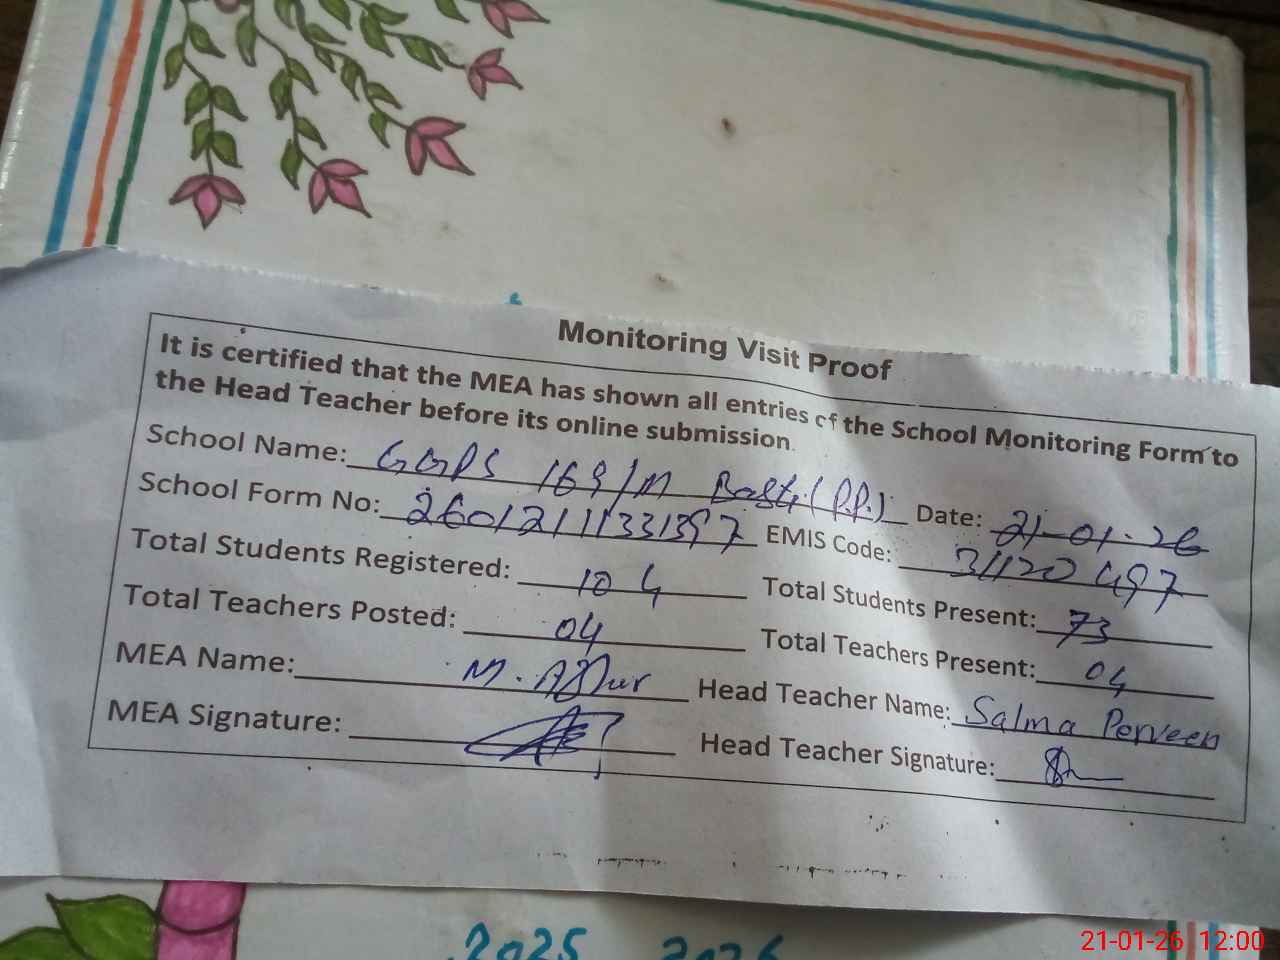 Monitoring Visit Proof
It is certified that the MEA has shown all entries of the School Monitoring Form to
the Head Teacher before its online submission.
School Name: GGPS 169/M Basti (P.P.) Date: 21-01-26
School Form No: 26012111331397 EMIS Code: 31120497
Total Students Registered: 104 Total Students Present: 73
Total Teachers Posted: 04 Total Teachers Present: 04
MEA Name: M. Head Teacher Name: Salma Perveen
MEA Signature: Head Teacher Signature:
2025 2026
21-01-26 12:00